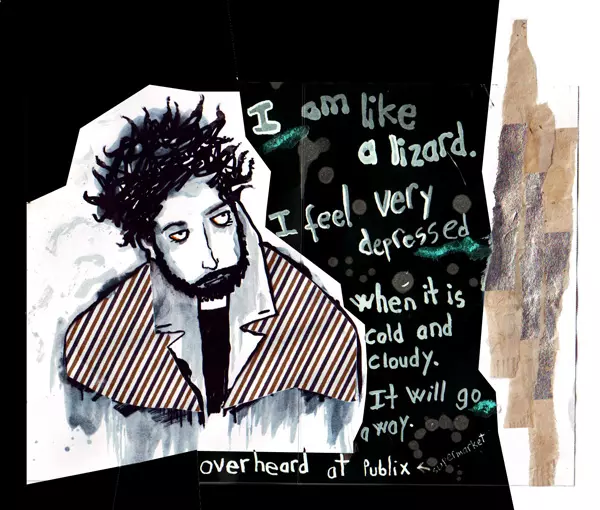 I am like
a lizard.
I feel very
depressed
when it is
cold and
cloudy.
It will go
away.
overheard at Publix ← supermarket